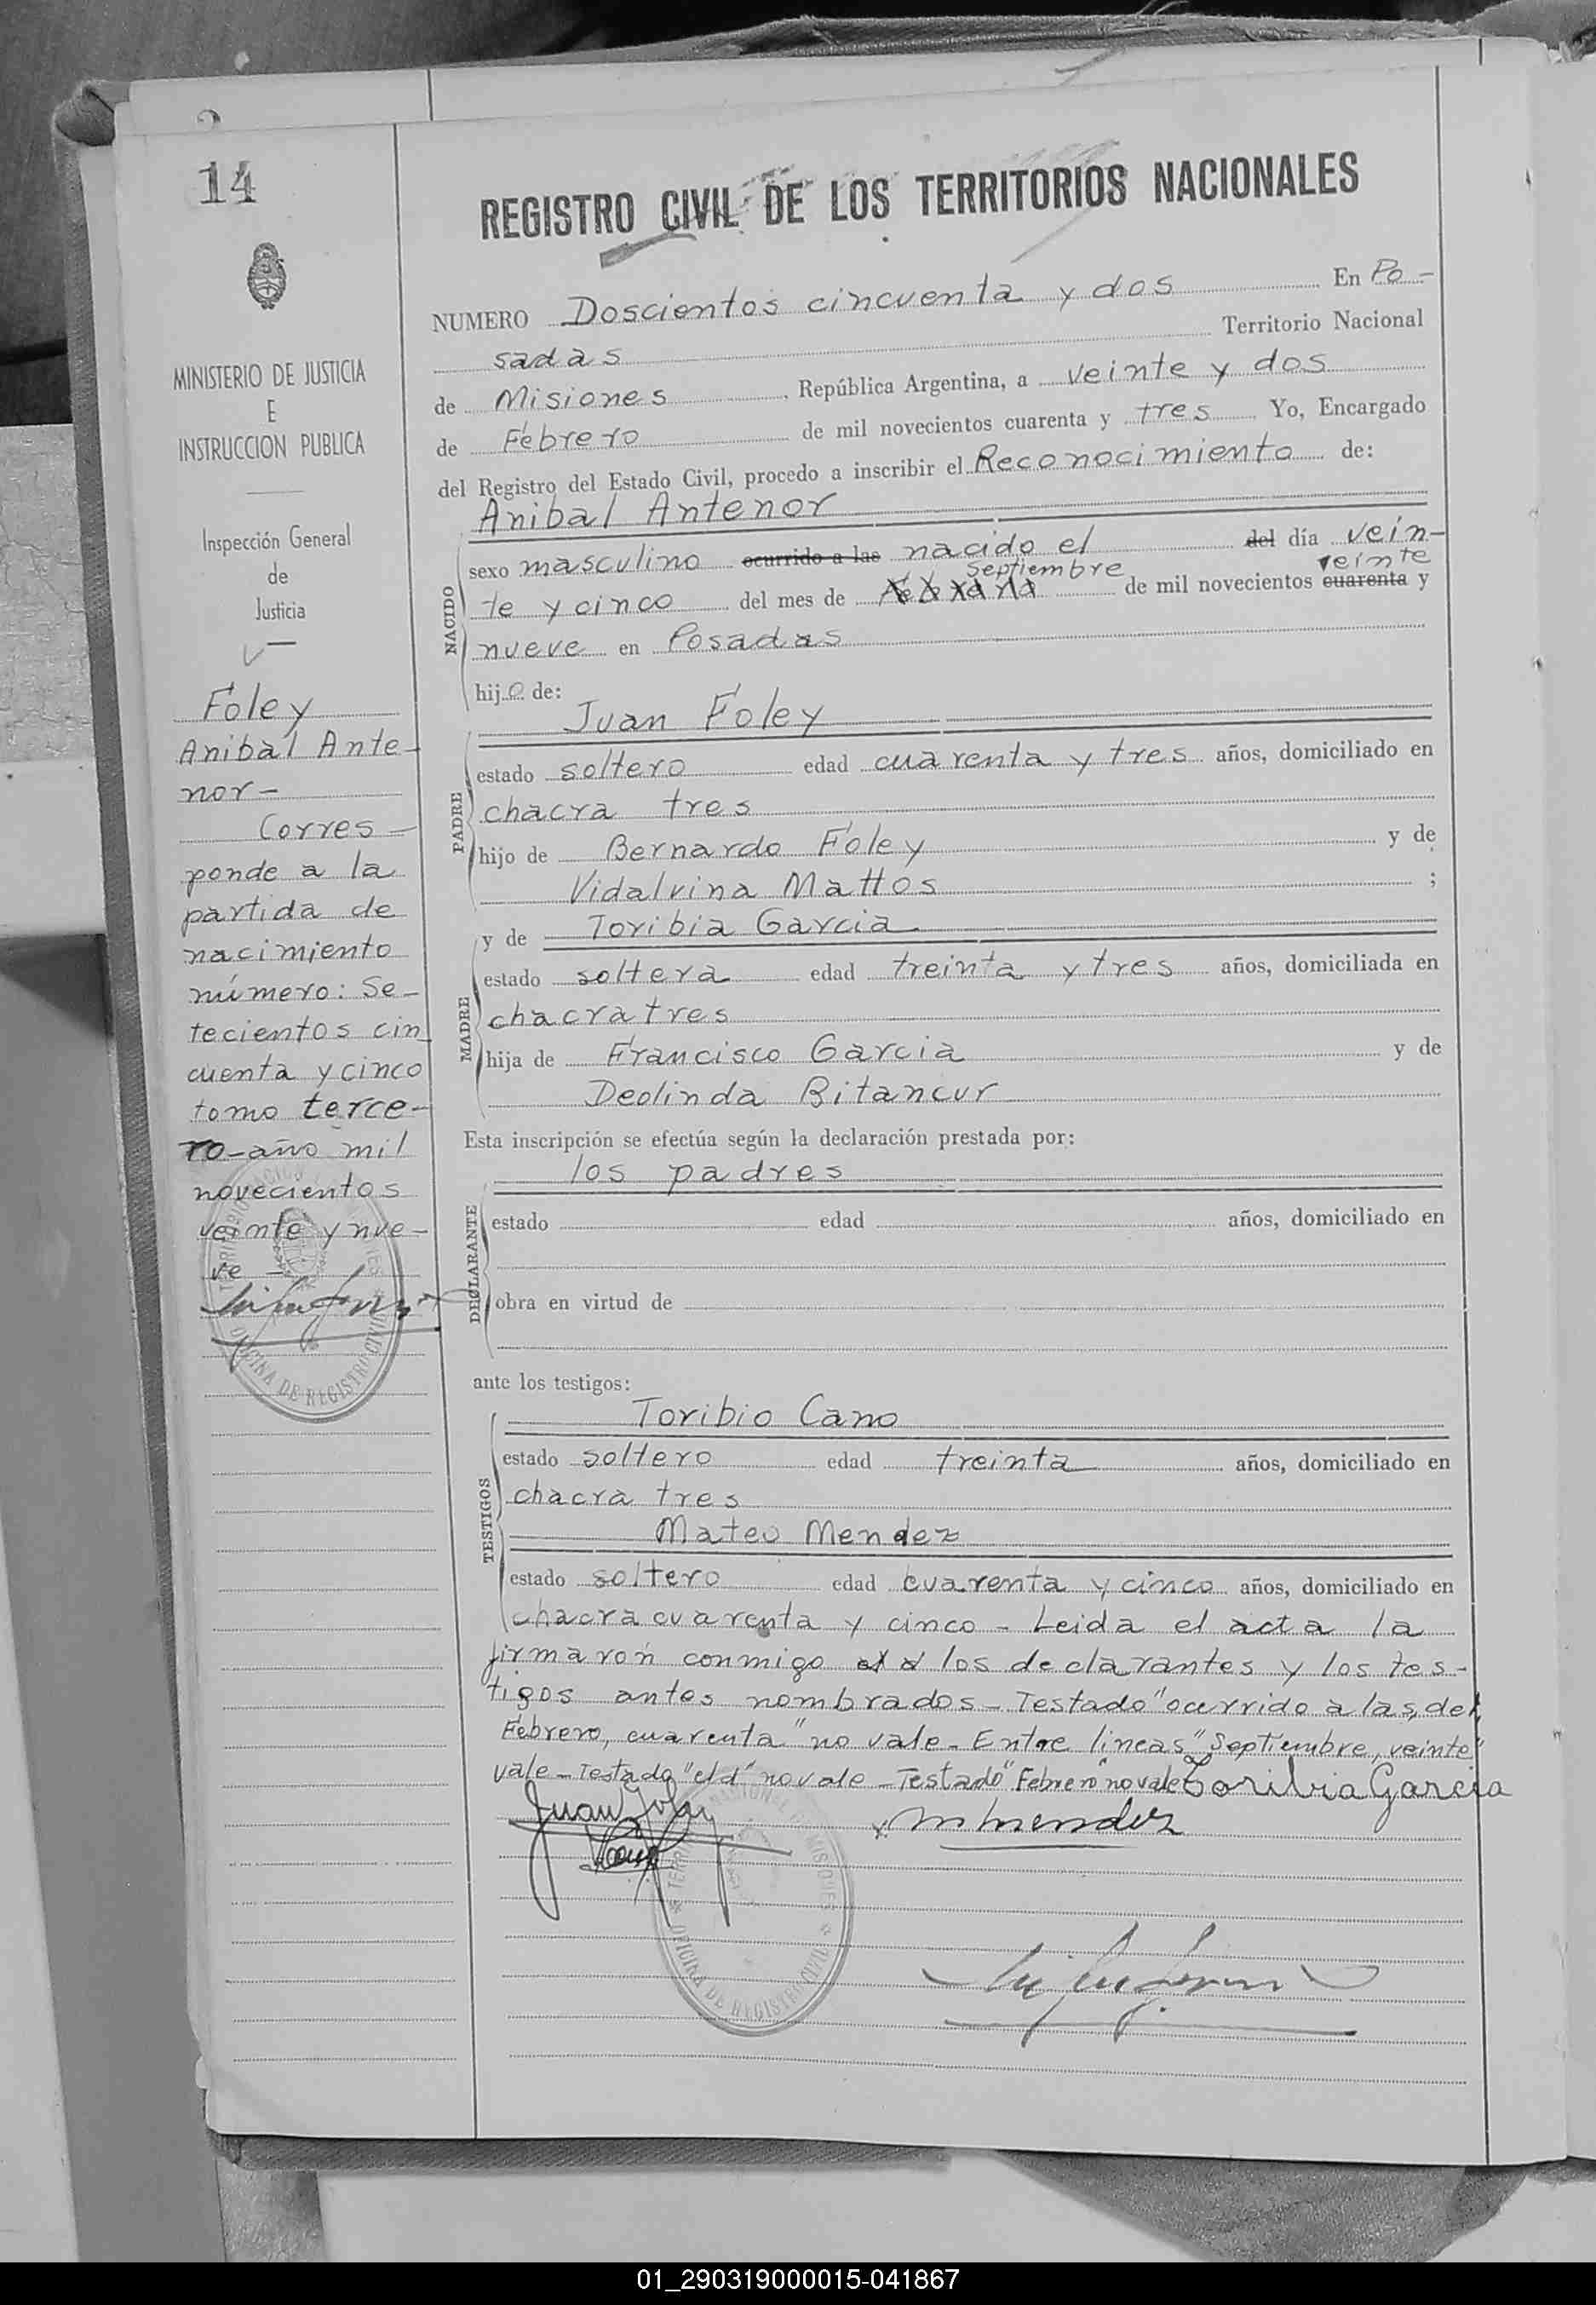 14
MINISTERIO DE JUSTICIA
E
INSTRUCCION PUBLICA
Inspección General
de
Justicia
Foley
Anibal Ante-
nor-
Corres-
ponde a la
partida de
nacimiento
número: Se-
tecientos cin
cuenta y cinco
tomo terce-
ro-año mil
novecientos
veinte y nue-
ve -
REGISTRO CIVIL DE LOS TERRITORIOS NACIONALES
NUMERO Doscientos cincuenta y dos En Po-
sadas Territorio Nacional
de Misiones, República Argentina, a veinte y dos
de Febrero de mil novecientos cuarenta y tres Yo, Encargado
del Registro del Estado Civil, procedo a inscribir el Reconocimiento de:
Anibal Antenor
NACIDO
sexo masculino ocurrido a las nacido el del día vein-
Septiembre veinte
te y cinco del mes de Febrero de mil novecientos cuarenta y
nueve en Posadas
hijo de:
Juan Foley
PADRE
estado soltero edad cuarenta y tres años, domiciliado en
chacra tres
hijo de Bernardo Foley y de
Vidalvina Mattos ;
y de Toribia Garcia
MADRE
estado soltera edad treinta y tres años, domiciliada en
chacra tres
hija de Francisco Garcia y de
Deolinda Bitancur
Esta inscripción se efectúa según la declaración prestada por:
los padres
DECLARANTE
estado edad años, domiciliado en
obra en virtud de
ante los testigos:
Toribio Cano
TESTIGOS
estado soltero edad treinta años, domiciliado en
chacra tres
Mateo Mendez
estado soltero edad cuarenta y cinco años, domiciliado en
chacra cuarenta y cinco - Leida el acta la
firmaron conmigo los declarantes y los tes-
tigos antes nombrados - Testado "ocurrido a las, del,
Febrero, cuarenta" no vale - Entre lineas "Septiembre, veinte"
vale - Testado "el d" no vale - Testado "Febrero" no vale Toribia Garcia
Juan Foley
M Mendez
Cano
TERRITORIO NACIONAL DE MISIONES
OFICINA DE REGISTRO CIVIL
01_290319000015-041867